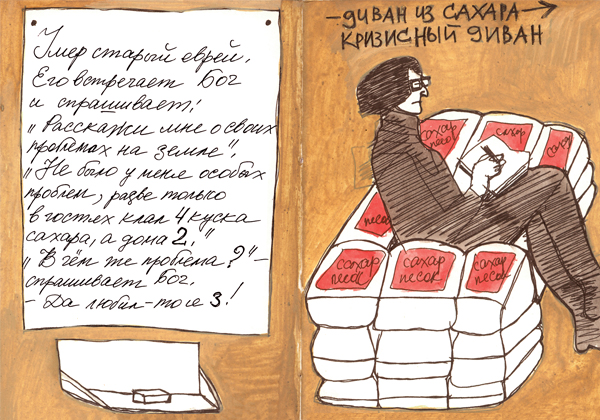 Умер старый еврей.
Его встречает Бог
и спрашивает:
„Расскажи мне о своих
проблемах на земле".
„Не было у меня особых
проблем, разве только
в гостях клал 4 куска
сахара, а дома 2."
„В чём же проблема?"–
спрашивает Бог.
– Да любил-то я 3!
–ДИВАН ИЗ САХАРА→
КРИЗИСНЫЙ ДИВАН
сахар
песок
сахар
сахар
песок
сахар
песок
сахар
песок
сахар
песок